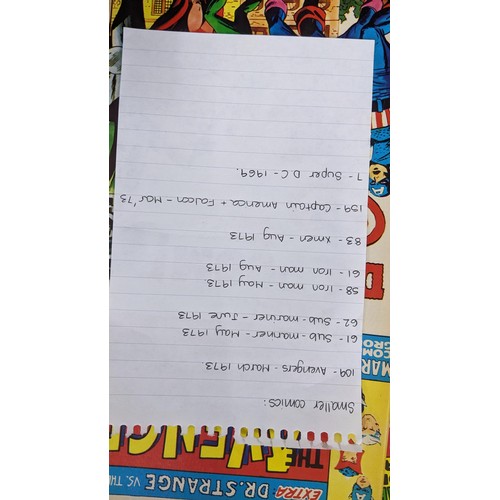 Smaller comics:
109 - Avengers - March 1973.
61 - Sub-mariner - May 1973
62 - Sub-mariner - June 1973
58 - Iron man - May 1973
61 - Iron man - Aug 1973
83 - Xmen - Aug 1973
159 - Captain America + Falcon - Mar '73
7 - Super D.C - 1969.
THE AVENGE
EXTRA DR. STRANGE VS. TH
MAR
COM
GRO